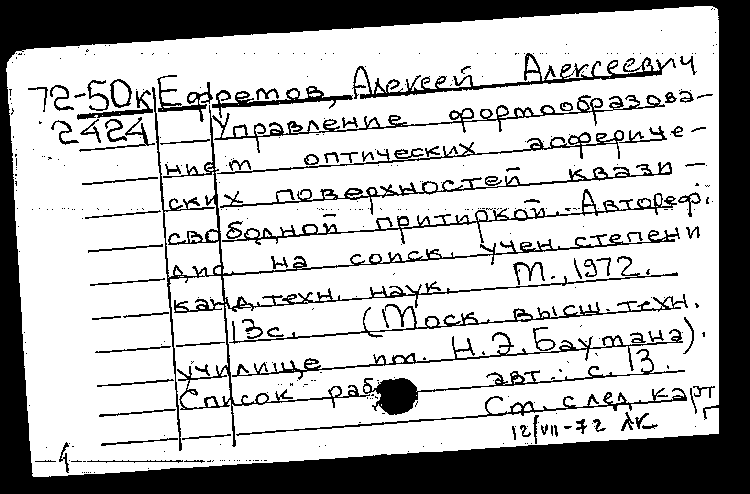 72-50к Ефремов, Алексей Алексеевич
2424 Управление формообразова-
нием оптических асфериче-
ских поверхностей квази-
свободной притиркой. Автореф.
дис. на соиск. учен. степени
канд. техн. наук. М., 1972.
13с. (Моск. высш. техн.
училище им. Н.Э.Баумана).
Список раб. авт.: с. 13.
См. след. карт
12/VII-72 ЛК